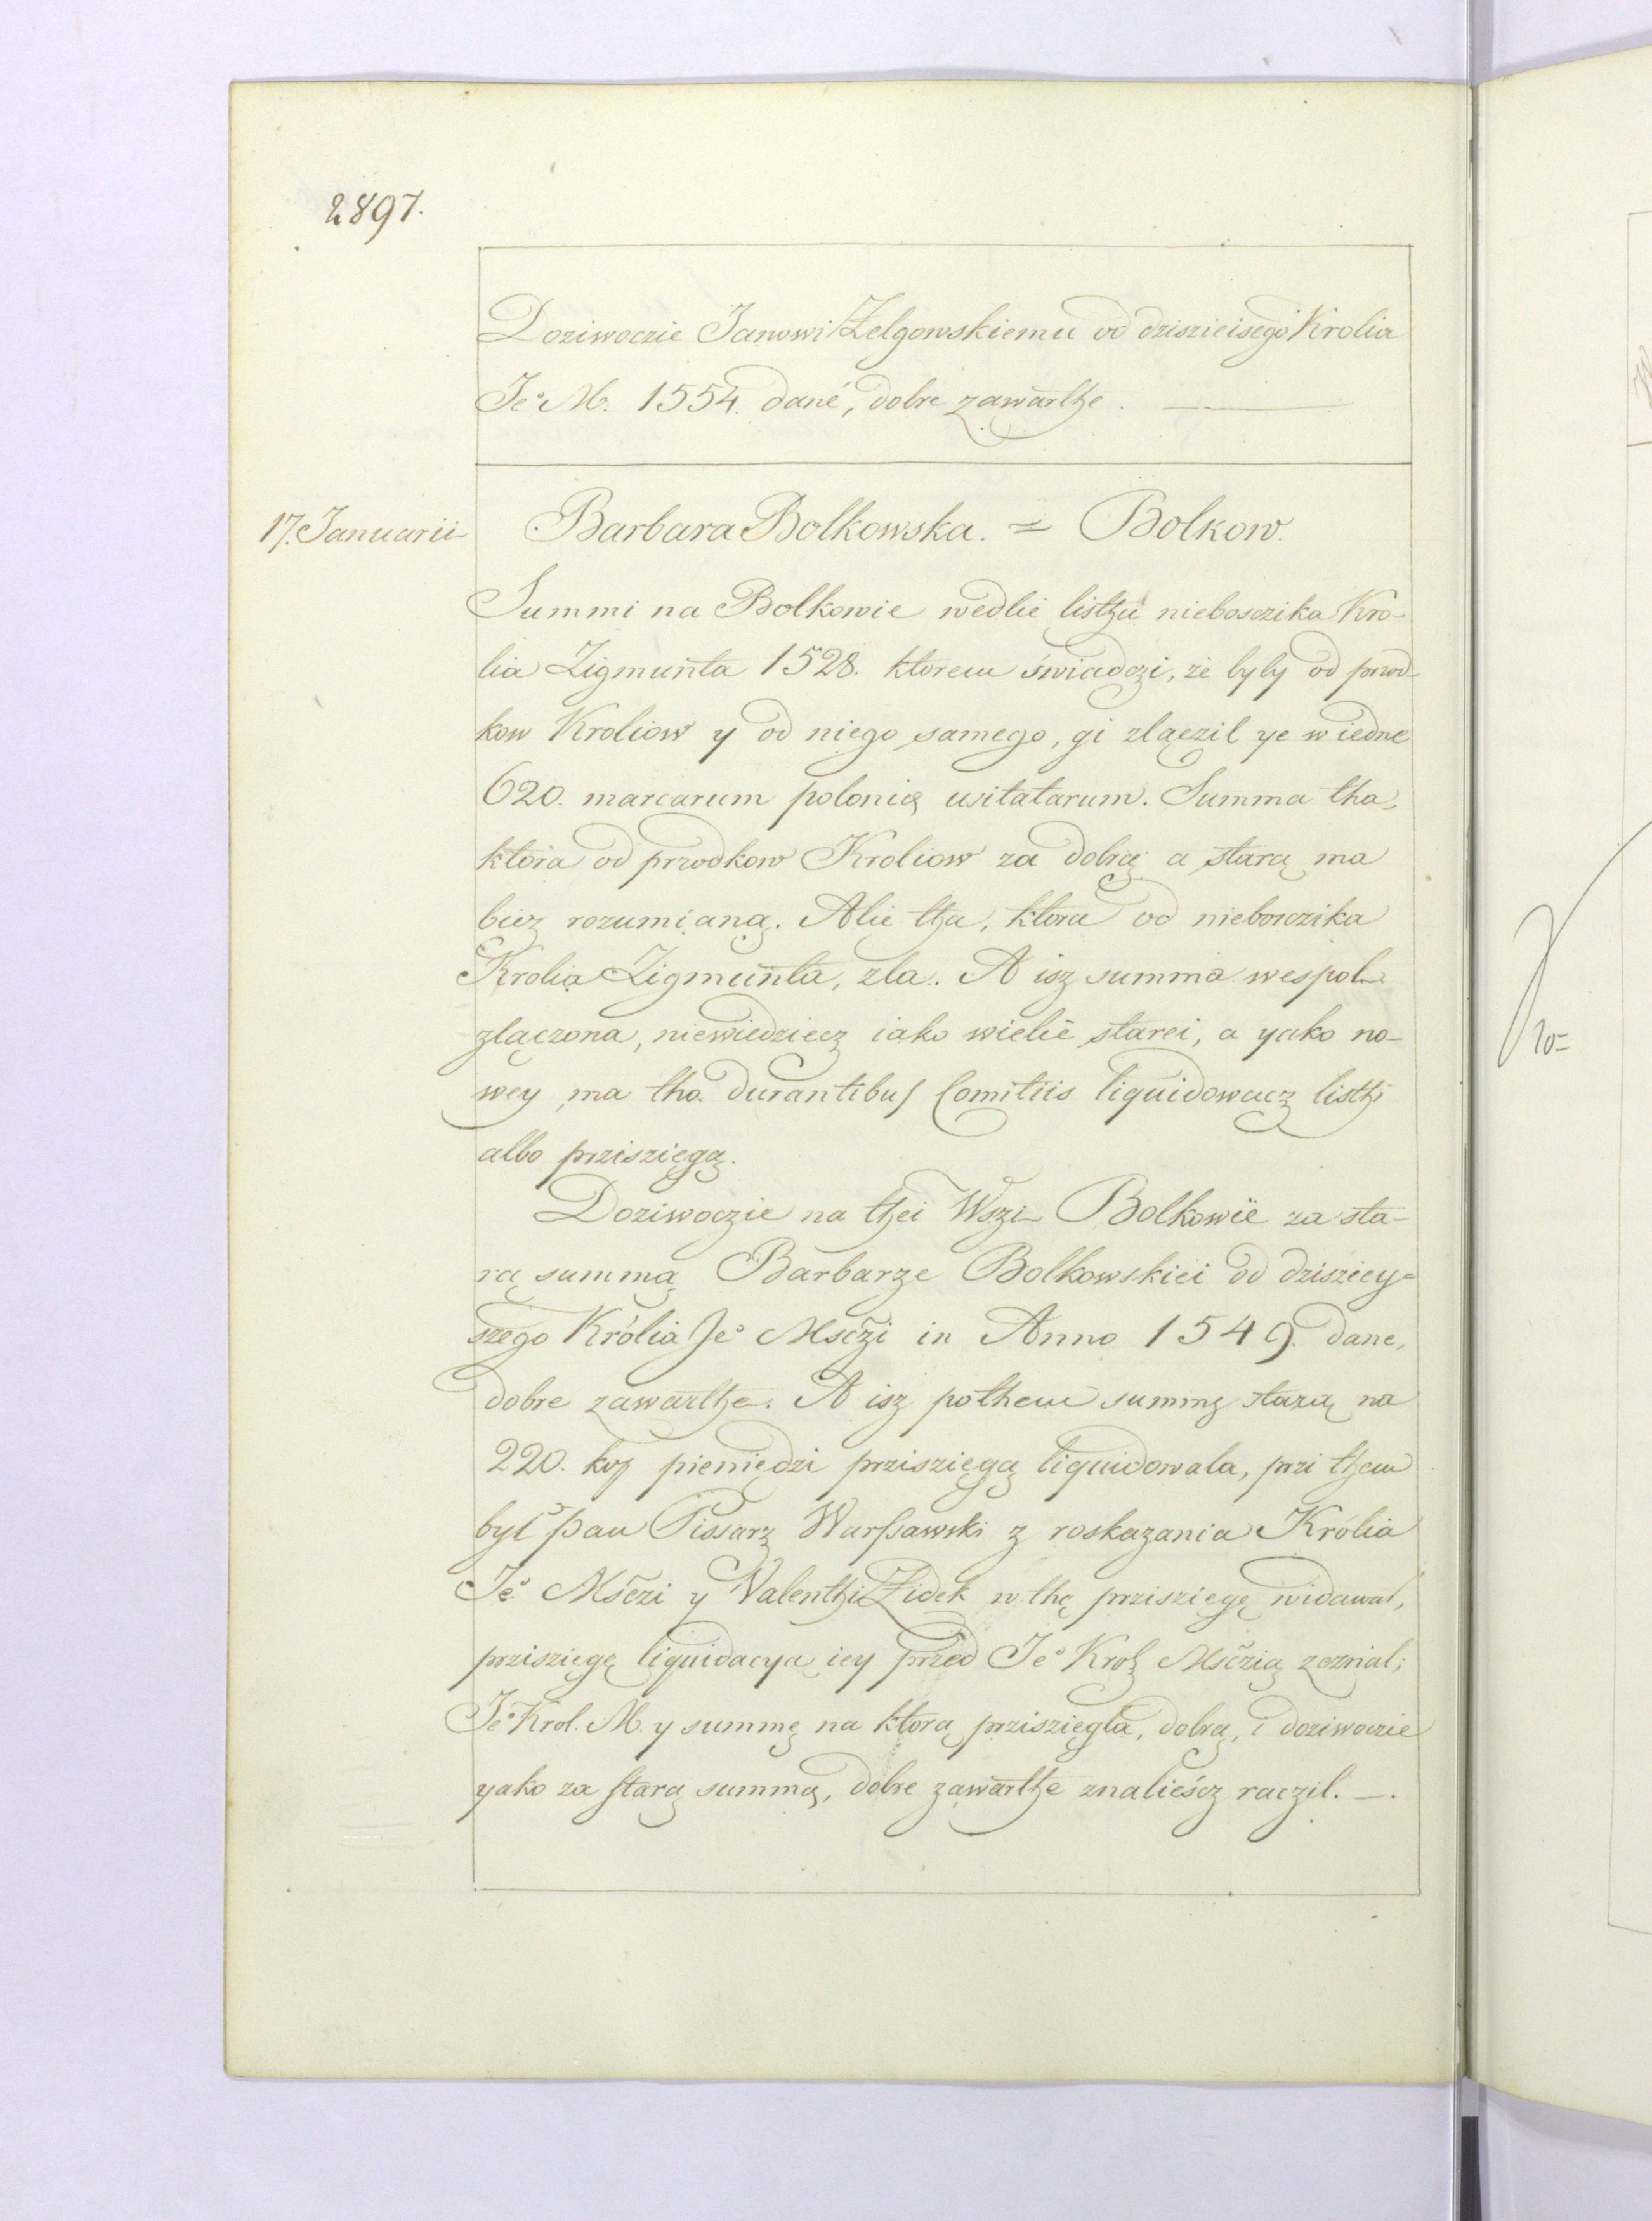 2897.
Doziwoczie Janowi Zelgowskiemu od dzisieisego Krolia
Je° M. 1554. dané, dobre zawarthe.
17. Januarii
Barbara Bolkowska. = Bolkow.
Summi na Bolkowie wedlie listhu nieboszika Kro-
lia Zigmunta 1528. ktorem świadczi, że byly od przod-
kow Kroliow y od niego samego, gi zlączil ye w iedne
620. marcarum polonię usitatarum. Summa tha,
ktora od przodkow Kroliow za dobrą a starą ma
biez rozumianą. Alie tha, ktora od nieboszika
Krolia Zigmunta, zla. A isz summa wespol
zlączona, niewiedziecz iako wielie starei, a yako no-
wey, ma tho durantibus Comitiis liquidowacz listhi
albo prziszięgą.
Doziwoczie na thei Wszi Bolkowie za sta-
rą summą Barbarze Bolkowskiei od dzisziey-
szego Królia Je° Msczi in Anno 1549. dane,
dobre zawarthe. A isz pothem summę starą na
220. kop pieniędzi prziszięgą liquidowala, przi them
był pan Pissarz Warszawski z roskazania Królia
Je° Msczi y Valenthi Zidek w thę prziszięgę widawał,
prziszięgę liquidacya iey przed Je° Krol Msczią zeznal;
Je° Krol. M. y summę na ktorą prziszięgła, dobrą, i doziwoczie
yako za starą summą, dobre zawarthe znalieścz raczil. —.